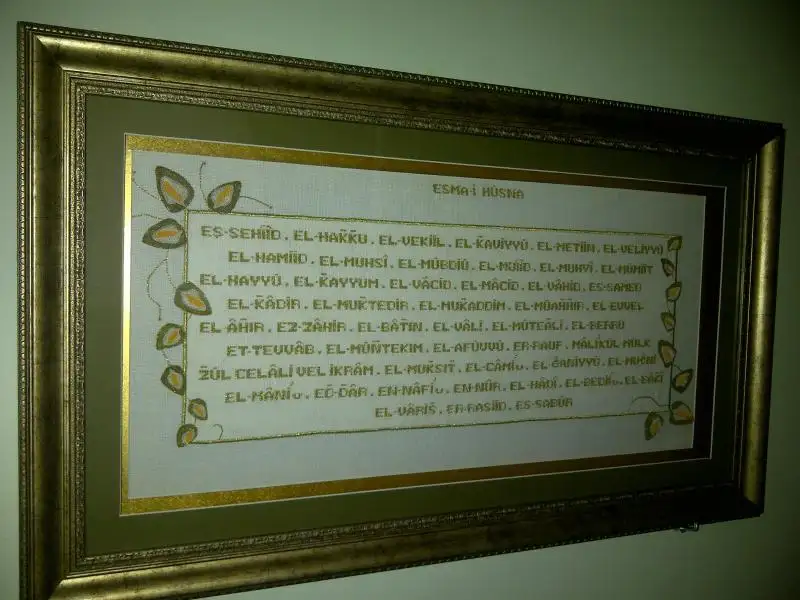 ESMA-İ HÜSNA
EŞ-ŞEHİİD . EL-HAKKU . EL-VEKİİL . EL-KAVİYYÜ . EL-METİİN . EL-VELİYYÜ
EL-HAMİİD . EL-MUHSÎ . EL-MÜBDİÜ . EL-MUİİD . EL-MUHYİ . EL-MÜMİİT
EL-HAYYÜ . EL-KAYYUM . EL-VÂCİD . EL-MÂCİD . EL-VÂHİD . ES-SAMED
EL-KÂDİR . EL-MUKTEDİR . EL-MUKADDİM . EL-MÜAHHİR . EL EVVEL
EL-ÂHİR . EZ-ZÂHİR . EL-BÂTIN . EL-VÂLİ . EL-MÜTEÂLİ . EL-BERRÜ
ET-TEVVÂB . EL-MÜNTEKIM . EL-AFÜVVÜ . ER-RAUF . MÂLİKÜL MÜLK
ZÜL CELÂLİ VEL İKRÂM . EL-MUKSIT . EL-CÂMİ . EL ĞANİYYÜ . EL-MUĞNİ
EL-MÂNİ . ED-DÂR . EN-NÂFİ . EN-NÛR . EL-HÂDİ . EL-BEDİİ . EL-BÂKİ
EL-VÂRİS . ER-RAŞİİD . ES-SABÛR